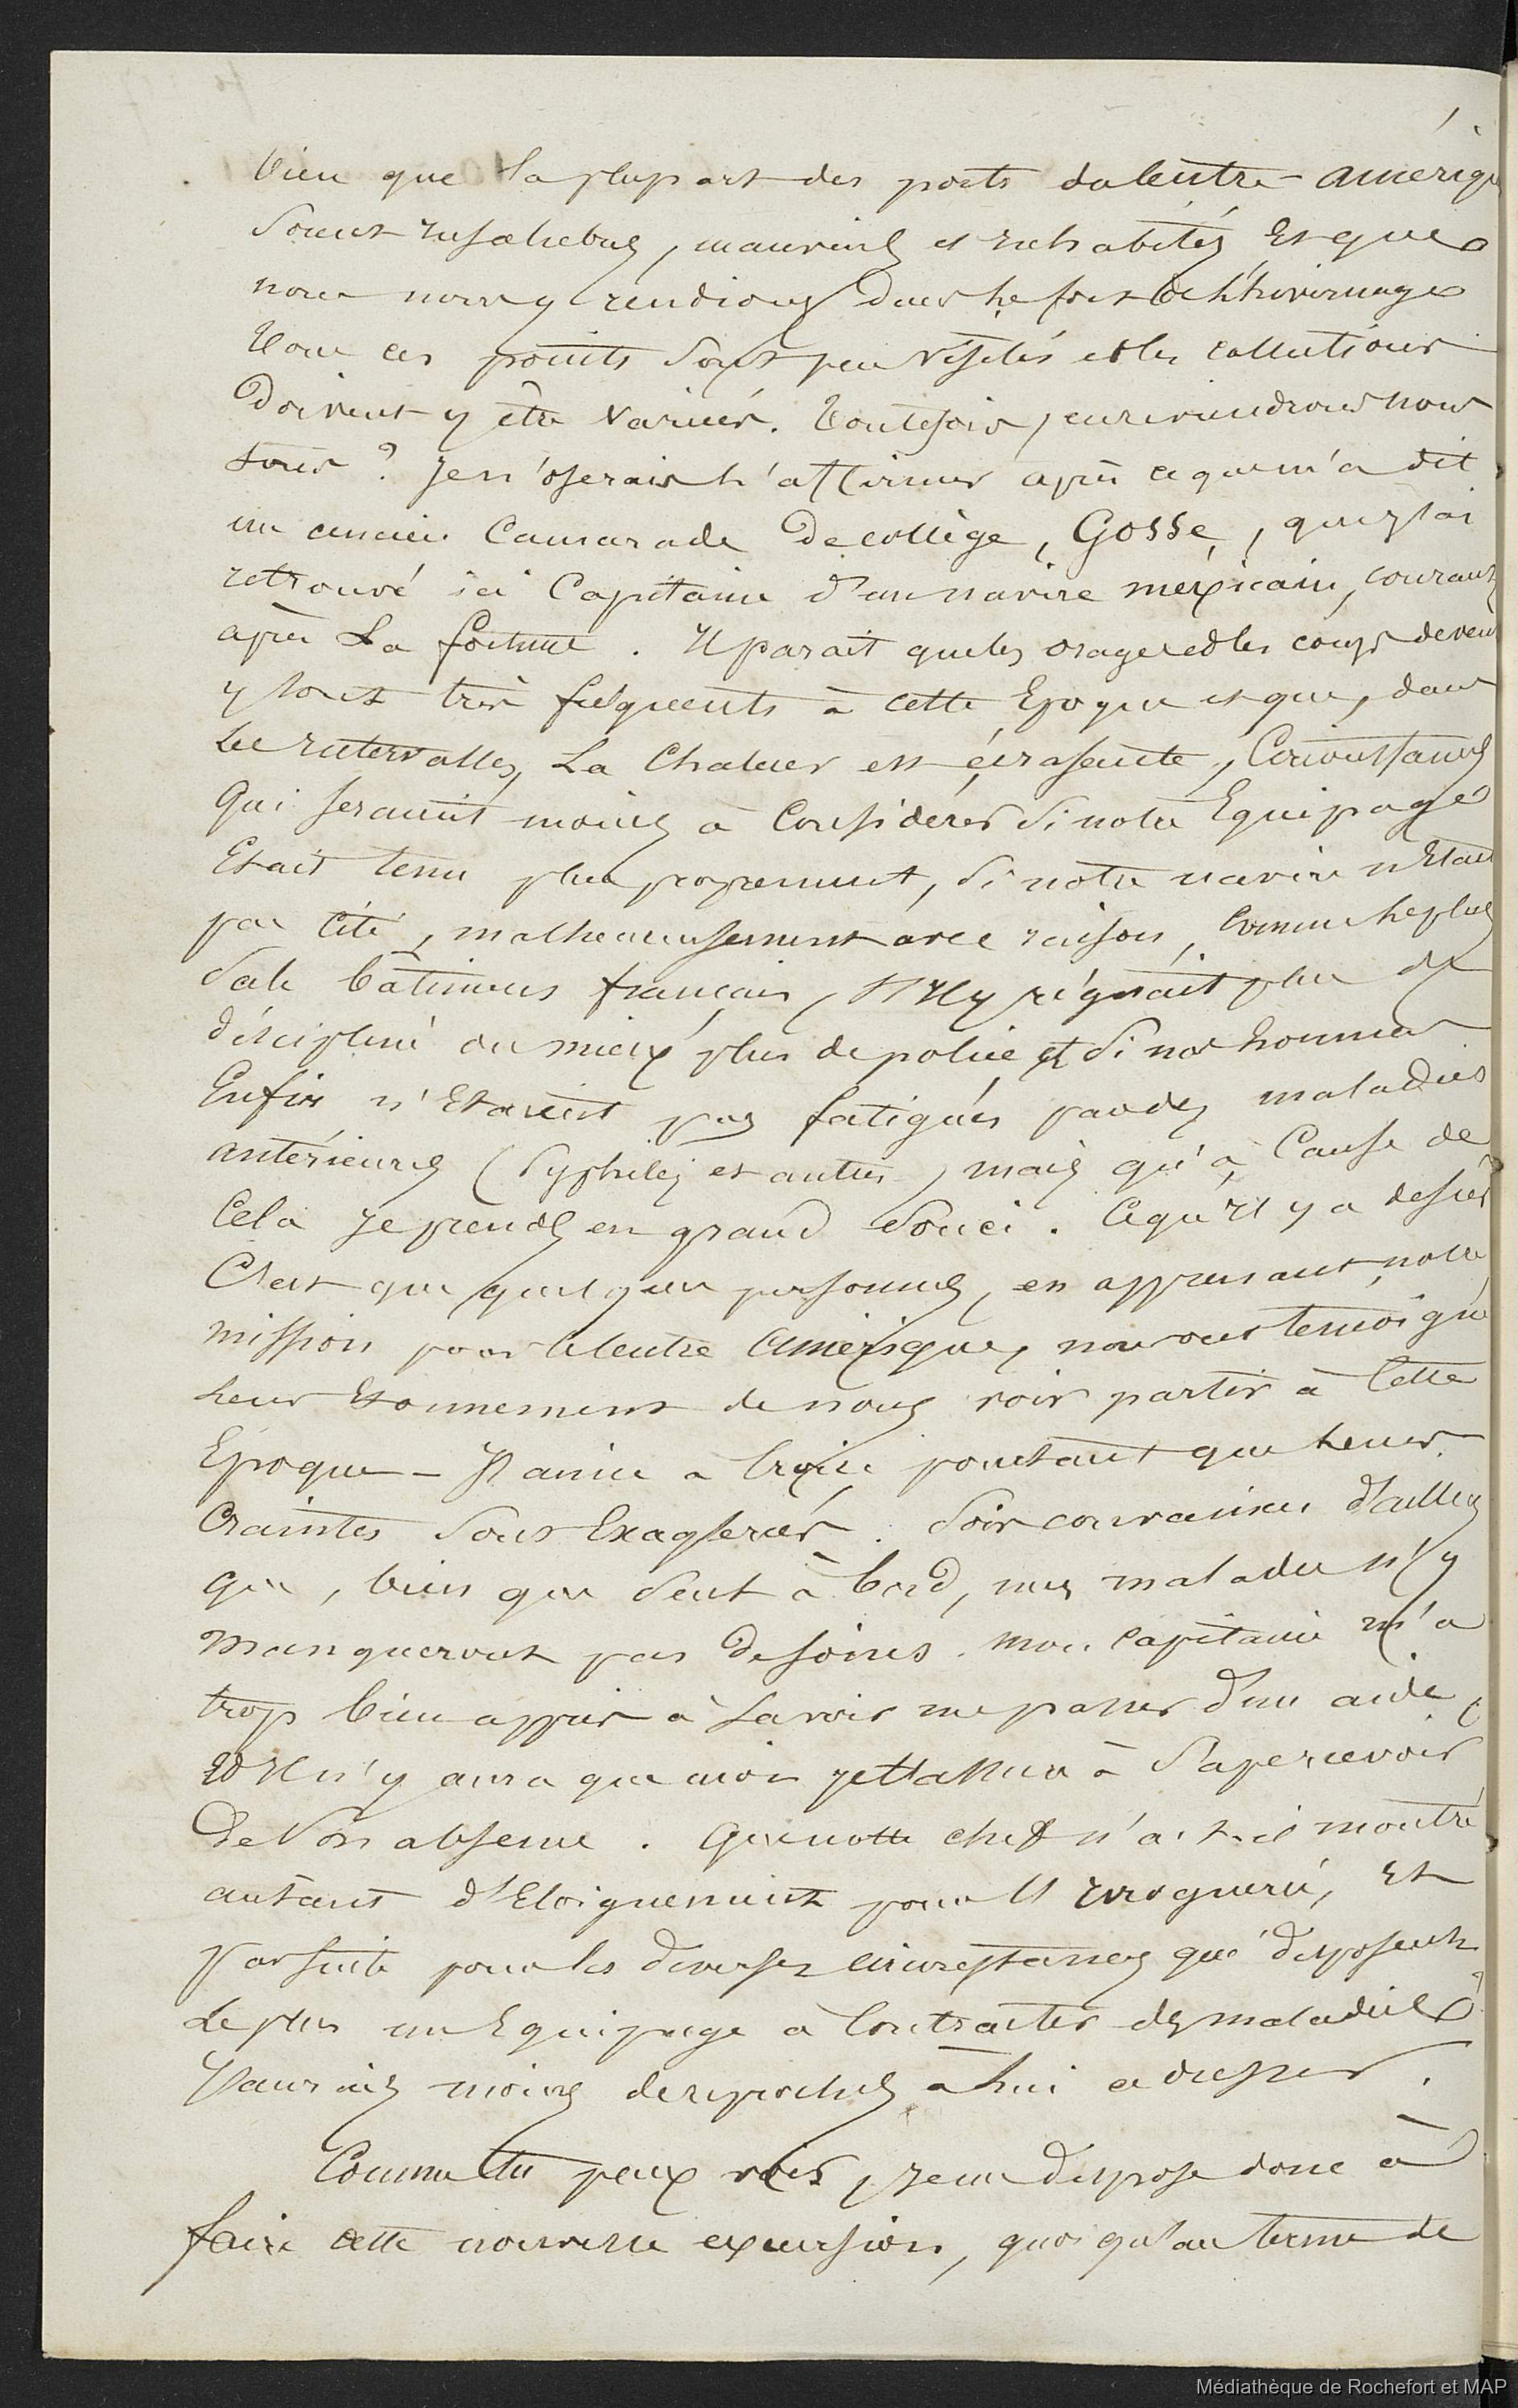 bien que la plupart des ports du centre amériqu
soient insalubres, mauvais et inhabités et que
nous nous y rendions dans le fort de l'hivernage
Tous ces points sont peu visités et les collections
doivent y être variées. Toutefois, en reviendrons nous
tous ? Je n'oserais l'affirmer après ce que m'a dit
un ancien camarade de collège, Gosse, que j'ai
retrouvé ici Capitaine d'un navire mexicain, courant
après la fortune. Il parait que les orages et les coups de vent
y sont très fréquents à cette Epoque et que, dans
les intervalles, la chaleur est écrasante, circonstances
qui seraient moins à considérer si notre Equipage
Etait tenu plus proprement, si notre navire n'Etait
pas cité, malheureusement avec raison, comme le plus
sale bâtiment français, s'il y régnait plus de
discipline ou mieux plus de police et si nos hommes
Enfin n'Etaient pas fatigués par des maladies
antérieures (Syphilis et autres, mais qu'à cause de
cela je prends en grand souci. Ce qu'il y a de sûr
C'est que quelques personnes, en apprenant notre
mission pour le centre Amérique, nous ont témoigné
leur Etonnement de nous voir partir à cette
Epoque – J'aime à croire pourtant que leurs
craintes sont Exagérées. Sois convaincu d'ailleurs
que, bien que seul à bord, mes malades n'y
manqueront pas de soins. Mon capitaine m'a
trop bien appris à savoir me passer d'un aide,
Et Il n'y aura que moi à s'apercevoir
de son absence. Que notre chef n'a-t-il montré
autant d'Eloignement pour l'ivrognerie, Et
par suite pour les diverses circonstances qui disposent
le plus un Equipage à contracter des maladies
J'aurais moins de reproches à lui adresser.
Comme tu peux voir, je me dispose donc à
faire cette nouvelle excursion, quoiqu'au terme de
Médiathèque de Rochefort et MAP